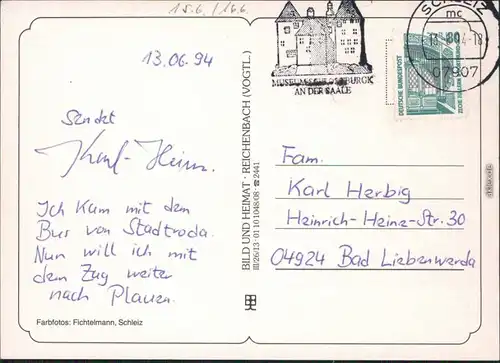 15.6./16.6.
13.06.94
sendet
Karl-Heinz.
Ich kam mit dem
Bus von Stadtroda.
Nun will ich mit
dem Zug weiter
nach Plauen.
Farbfotos: Fichtelmann, Schleiz
BILD UND HEIMAT · REICHENBACH (VOGTL.)
III/26/13 · 01 10 1 048/08 · ☎ 2441
MUSEUM SCHLOSS BURGK
AN DER SAALE
SCHLEIZ
mc
07907
DEUTSCHE BUNDESPOST
Fam.
Karl Herbig
Heinrich-Heine-Str. 30
04924 Bad Liebenwerda